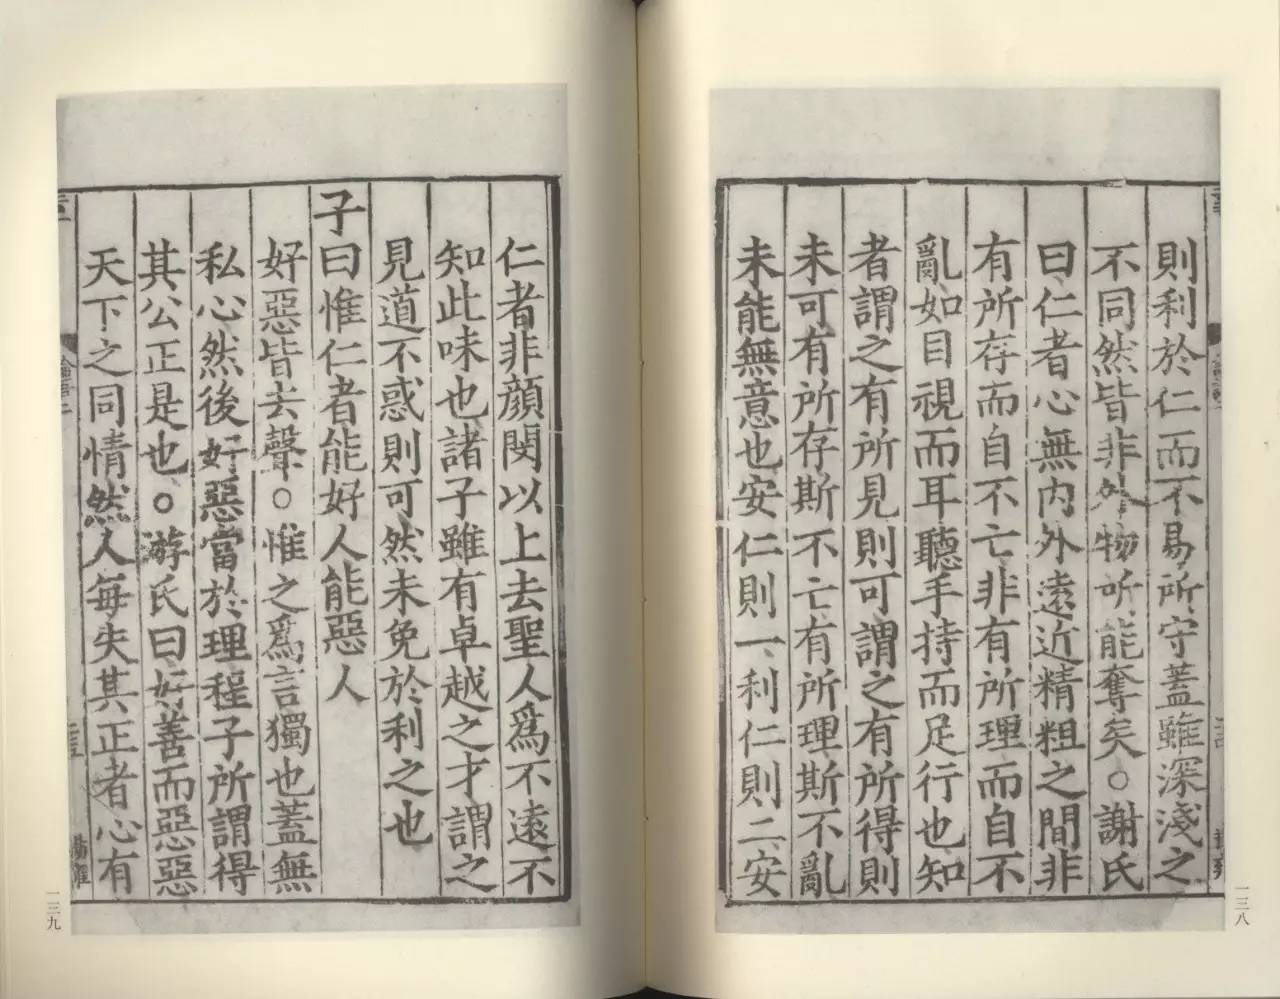 則利於仁而不易所守蓋雖深淺之
不同然皆非外物所能奪矣○謝氏
曰仁者心無内外遠近精粗之間非
有所存而自不亡非有所理而自不
亂如目視而耳聽手持而足行也知
者謂之有所見則可謂之有所得則
未可有所存斯不亡有所理斯不亂
未能無意也安仁則一利仁則二安
一三八
仁者非顔閔以上去聖人爲不遠不
知此味也諸子雖有卓越之才謂之
見道不惑則可然未免於利之也
子曰惟仁者能好人能惡人
好惡皆去聲○惟之爲言獨也蓋無
私心然後好惡當於理程子所謂得
其公正是也○游氏曰好善而惡惡
天下之同情然人每失其正者心有
一三九